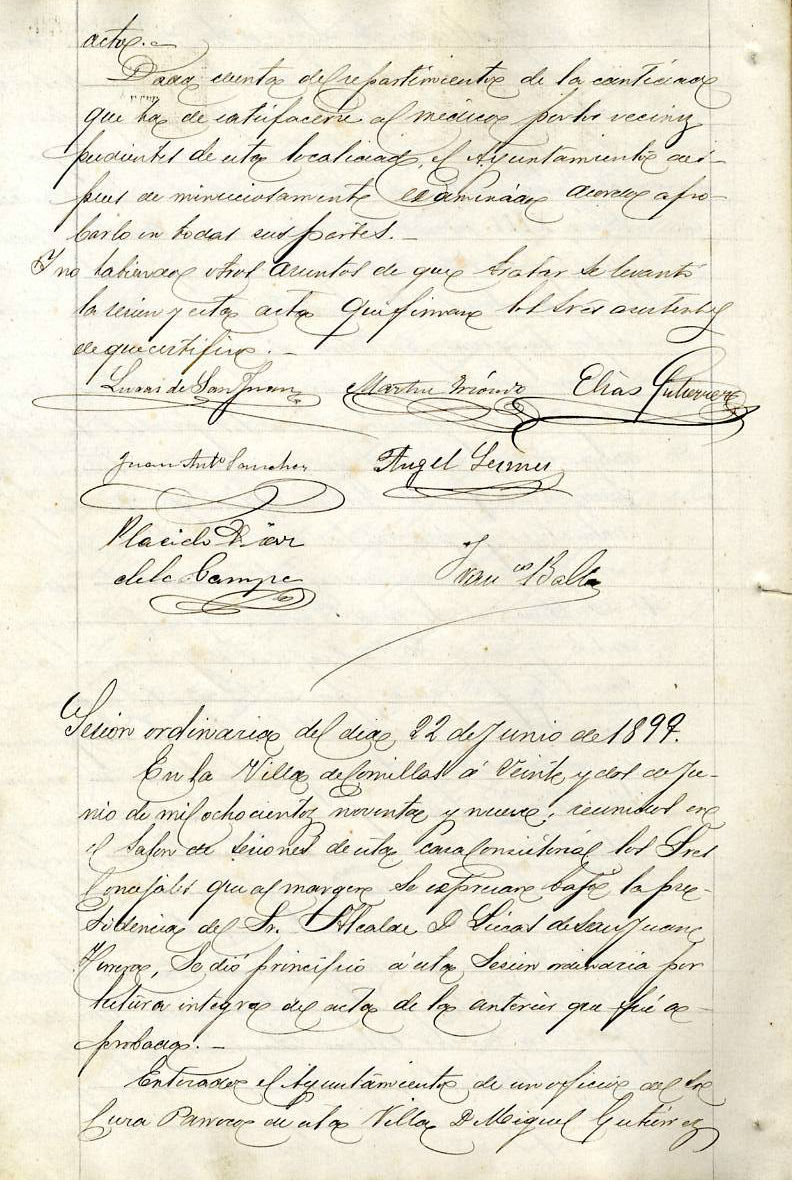 acto.
Dada cuenta del repartimiento de la cantidad
que ha de satisfacerse al médico por los vecinos
pudientes de esta localidad, el Ayuntamiento des-
pues de minuciosamente examinado acordo apro-
barlo en todas sus partes.
Y no habiendo otros asuntos de que tratar se levantó
la sesion y esta acta que firman los Sres asistentes
de que certifico.
Lucas de San Juan Martin Elías Gutierrez
Juan Antº Sanchez Angel
Placido Diaz
de la Campa Franco
Sesion ordinaria del dia 22 de Junio de 1899.
En la Villa de Comillas á Veinte y dos de Ju-
nio de mil ochocientos noventa y nueve; reunidos en
el Salon de sesiones de esta casa Consistorial los Sres
Concejales que al margen se expresan bajo la pre-
sidencia del Sr. Alcalde D Lucas de San Juan
Herrera, Se dió principio á esta Sesion ordinaria por
lectura integra del acta de la anterior que fué a-
probada.
Enterado el Ayuntamiento de un oficio del Sr
Cura Parroco de esta Villa D Miguel Gutiérrez